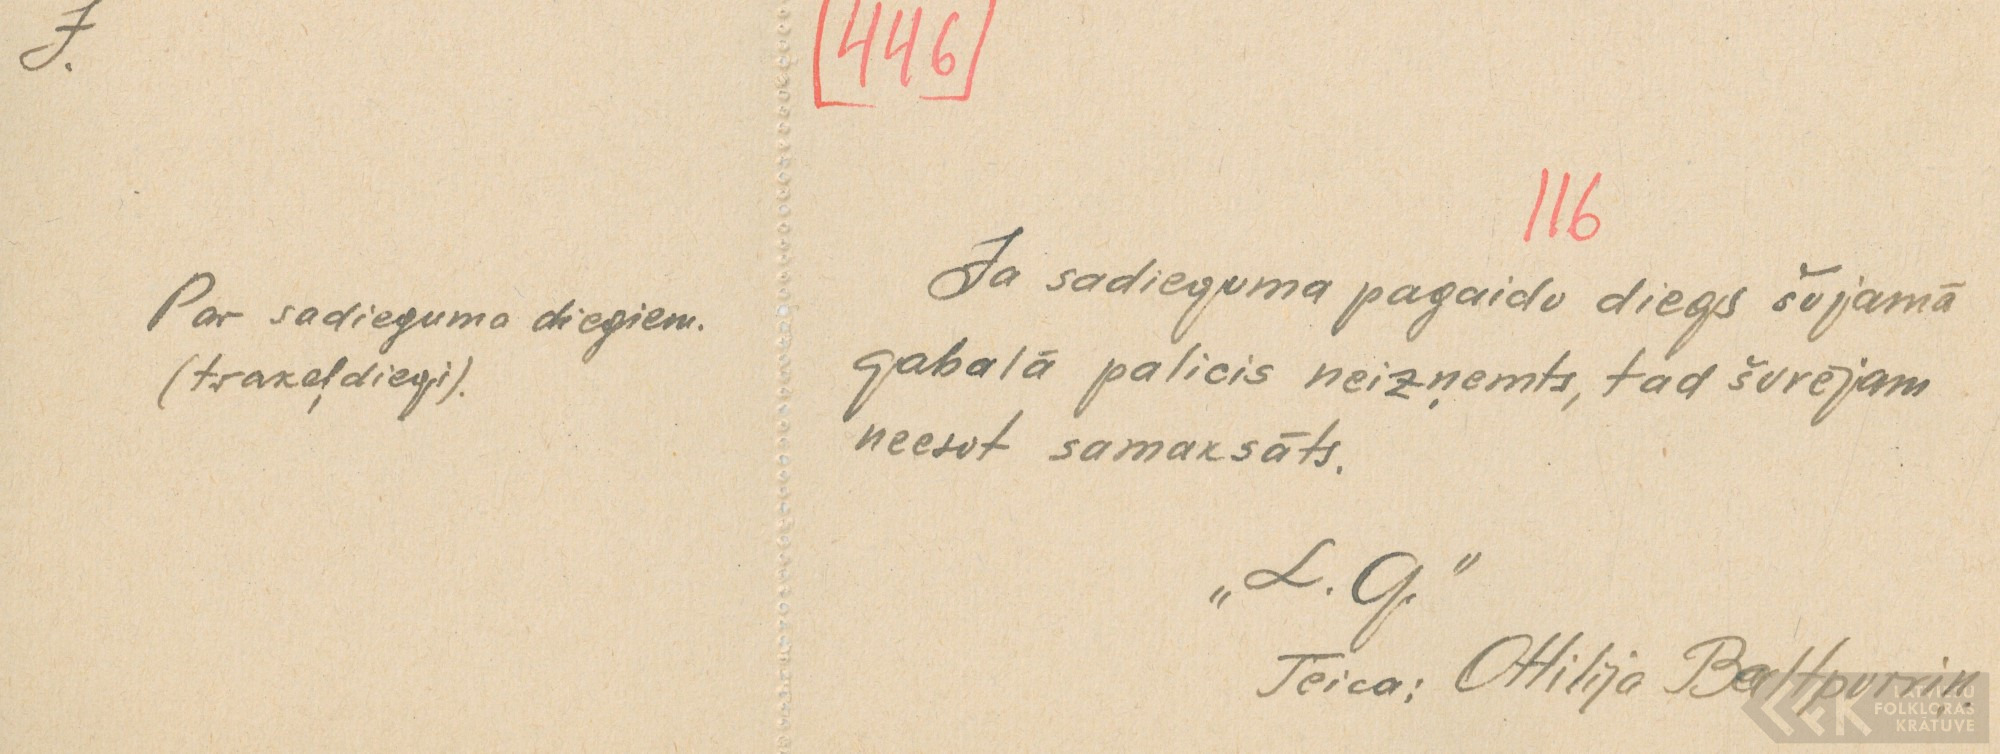 J.
[446]
116
Par sadieguma diegiem.
(trakeļdiegi).
Ja sadieguma pagaidu diegs šujamā
gabalā palicis neizņemts, tad šuvējam
neesot samaksāts.
„L. G."
Teica: Ottilija Baltpurviņ.
LATVIEŠU
FOLKLORAS
KRĀTUVE